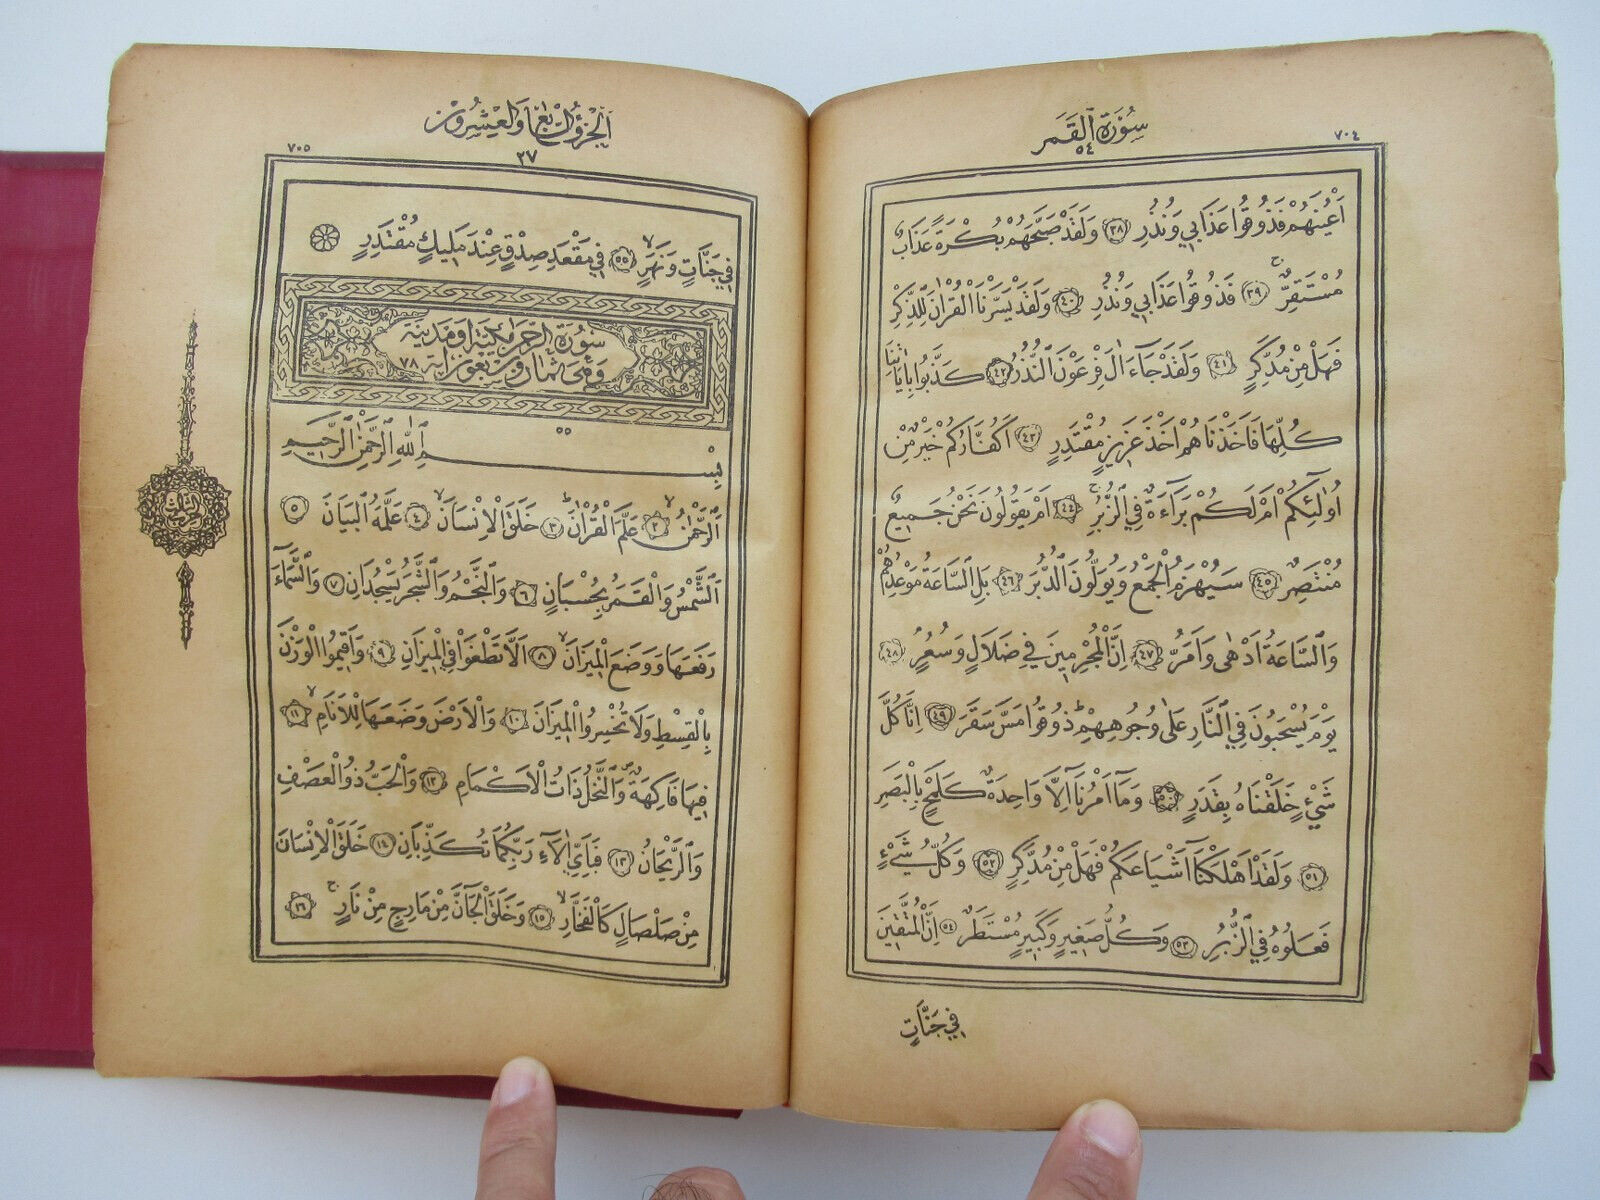 ٧٠٤
سُورَةُ ٱلْقَمَرِ
٥٤
اَعْيُنَهُمْ فَذُوقُوا عَذَابِي وَنُذُرِ ٣٨ وَلَقَدْ صَبَّحَهُمْ بُكْرَةً عَذَابٌ
مُسْتَقِرٌّ ج ٣٩ فَذُوقُوا عَذَابِي وَنُذُرِ ٤٠ وَلَقَدْ يَسَّرْنَا الْقُرْاٰنَ لِلذِّكْرِ
فَهَلْ مِنْ مُدَّكِرٍ ٤١ وَلَقَدْ جَآءَ اٰلَ فِرْعَوْنَ النُّذُرُ ٤٢ كَذَّبُوا بِاٰيَاتِنَا
كُلِّهَا فَاَخَذْنَاهُمْ اَخْذَ عَزِيزٍ مُقْتَدِرٍ ٤٣ اَكُفَّارُكُمْ خَيْرٌ مِنْ
اُولٰٓئِكُمْ اَمْ لَكُمْ بَرَآءَةٌ فِي الزُّبُرِ ج ٤٤ اَمْ يَقُولُونَ نَحْنُ جَمِيعٌ
مُنْتَصِرٌ ٤٥ سَيُهْزَمُ الْجَمْعُ وَيُوَلُّونَ الدُّبُرَ ٤٦ بَلِ السَّاعَةُ مَوْعِدُهُمْ
وَالسَّاعَةُ اَدْهٰى وَاَمَرُّ ٤٧ اِنَّ الْمُجْرِمِينَ فِي ضَلَالٍ وَسُعُرٍ ٤٨
يَوْمَ يُسْحَبُونَ فِي النَّارِ عَلٰى وُجُوهِهِمْ ذُوقُوا مَسَّ سَقَرَ ٤٩ اِنَّا كُلَّ
شَيْءٍ خَلَقْنَاهُ بِقَدَرٍ ٥٠ وَمَآ اَمْرُنَآ اِلَّا وَاحِدَةٌ كَلَمْحٍ بِالْبَصَرِ
٥١ وَلَقَدْ اَهْلَكْنَآ اَشْيَاعَكُمْ فَهَلْ مِنْ مُدَّكِرٍ ٥٢ وَكُلُّ شَيْءٍ
فَعَلُوهُ فِي الزُّبُرِ ٥٣ وَكُلُّ صَغِيرٍ وَكَبِيرٍ مُسْتَطَرٌ ٥٤ اِنَّ الْمُتَّقِينَ
فِي جَنَّاتٍ
٧٠٥
اَلْجُزْؤُ السَّابِعُ وَالْعِشْرُونَ
٢٧
فِي جَنَّاتٍ وَنَهَرٍ لا ٥٥ فِي مَقْعَدِ صِدْقٍ عِنْدَ مَلِيكٍ مُقْتَدِرٍ
سُورَةُ الرَّحْمٰنِ مَكِّيَّةٌ اَوْ مَدَنِيَّةٌ
وَهِيَ ثَمَانٍ وَسَبْعُونَ اٰيَةً ٧٨
٥٥
بِسْمِ ٱللّٰهِ ٱلرَّحْمٰنِ ٱلرَّحِيمِ
اَلرَّحْمٰنُ لا ٢ عَلَّمَ الْقُرْاٰنَ ط ٣ خَلَقَ الْاِنْسَانَ لا ٤ عَلَّمَهُ الْبَيَانَ ٥
اَلشَّمْسُ وَالْقَمَرُ بِحُسْبَانٍ ٦ وَالنَّجْمُ وَالشَّجَرُ يَسْجُدَانِ ٧ وَالسَّمَآءَ
رَفَعَهَا وَوَضَعَ الْمِيزَانَ لا ٨ اَلَّا تَطْغَوْا فِي الْمِيزَانِ ٩ وَاَقِيمُوا الْوَزْنَ
بِالْقِسْطِ وَلَا تُخْسِرُوا الْمِيزَانَ ١٠ وَالْاَرْضَ وَضَعَهَا لِلْاَنَامِ لا ١١
فِيهَا فَاكِهَةٌ وَالنَّخْلُ ذَاتُ الْاَكْمَامِ ١٢ وَالْحَبُّ ذُو الْعَصْفِ
وَالرَّيْحَانُ ١٣ فَبِاَيِّ اٰلَآءِ رَبِّكُمَا تُكَذِّبَانِ ١٤ خَلَقَ الْاِنْسَانَ
مِنْ صَلْصَالٍ كَالْفَخَّارِ لا ١٥ وَخَلَقَ الْجَآنَّ مِنْ مَارِجٍ مِنْ نَارٍ ج ١٦